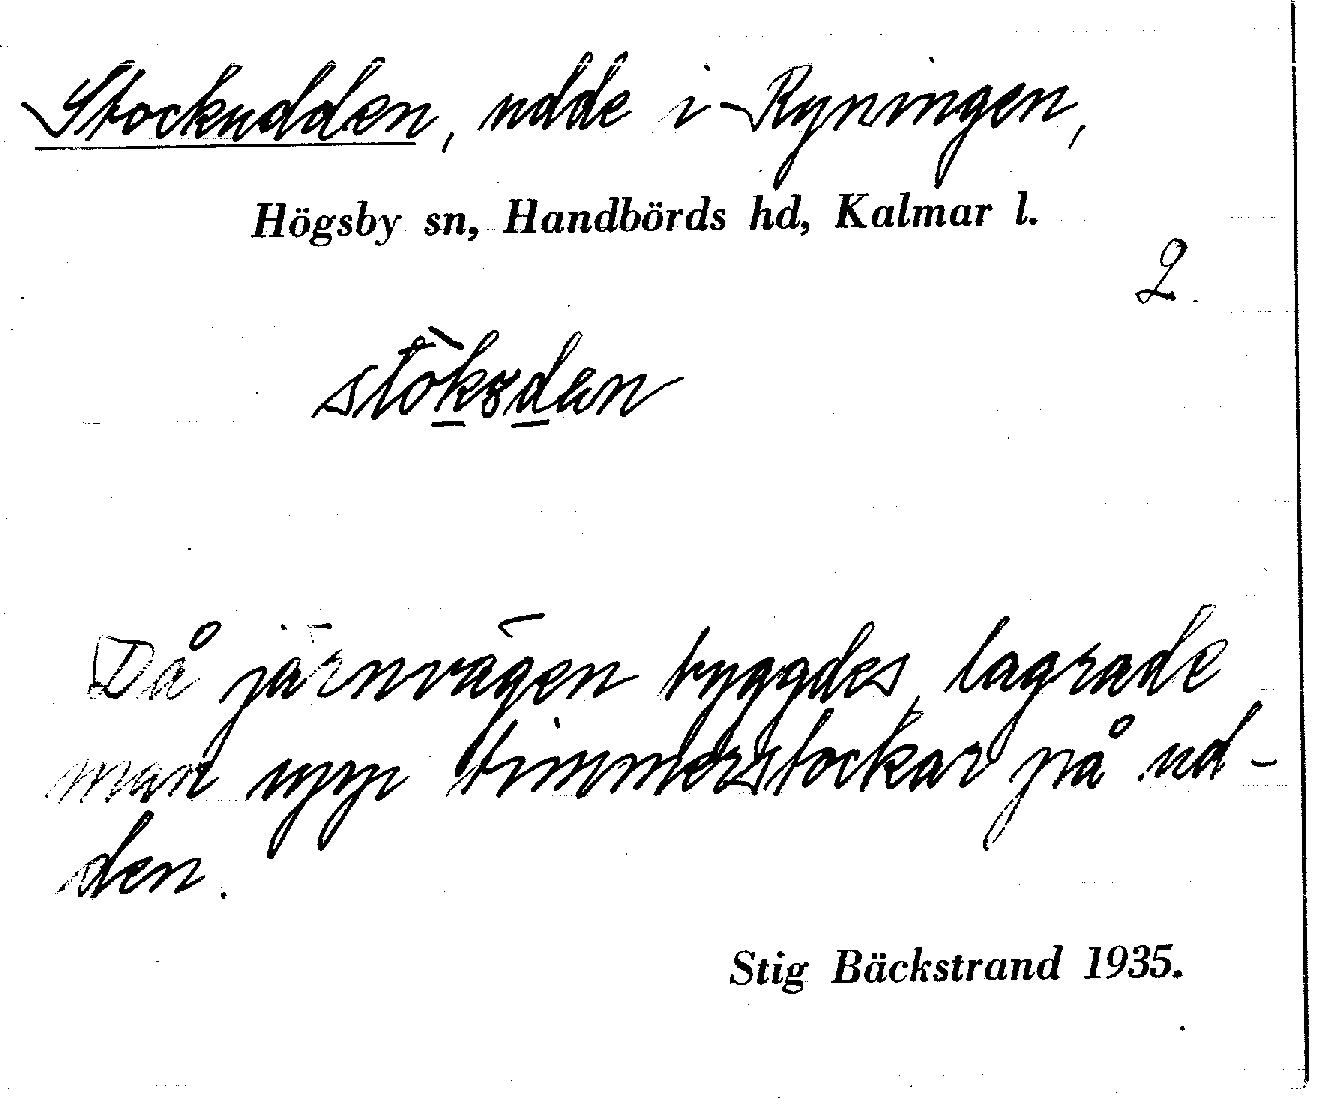 Stockudden, udde i Ryningen,
Högsby sn, Handbörds hd, Kalmar l.
2.
Då järnvägen byggdes, lagrade
man upp timmerstockar på ud-
den.
Stig Bäckstrand 1935.